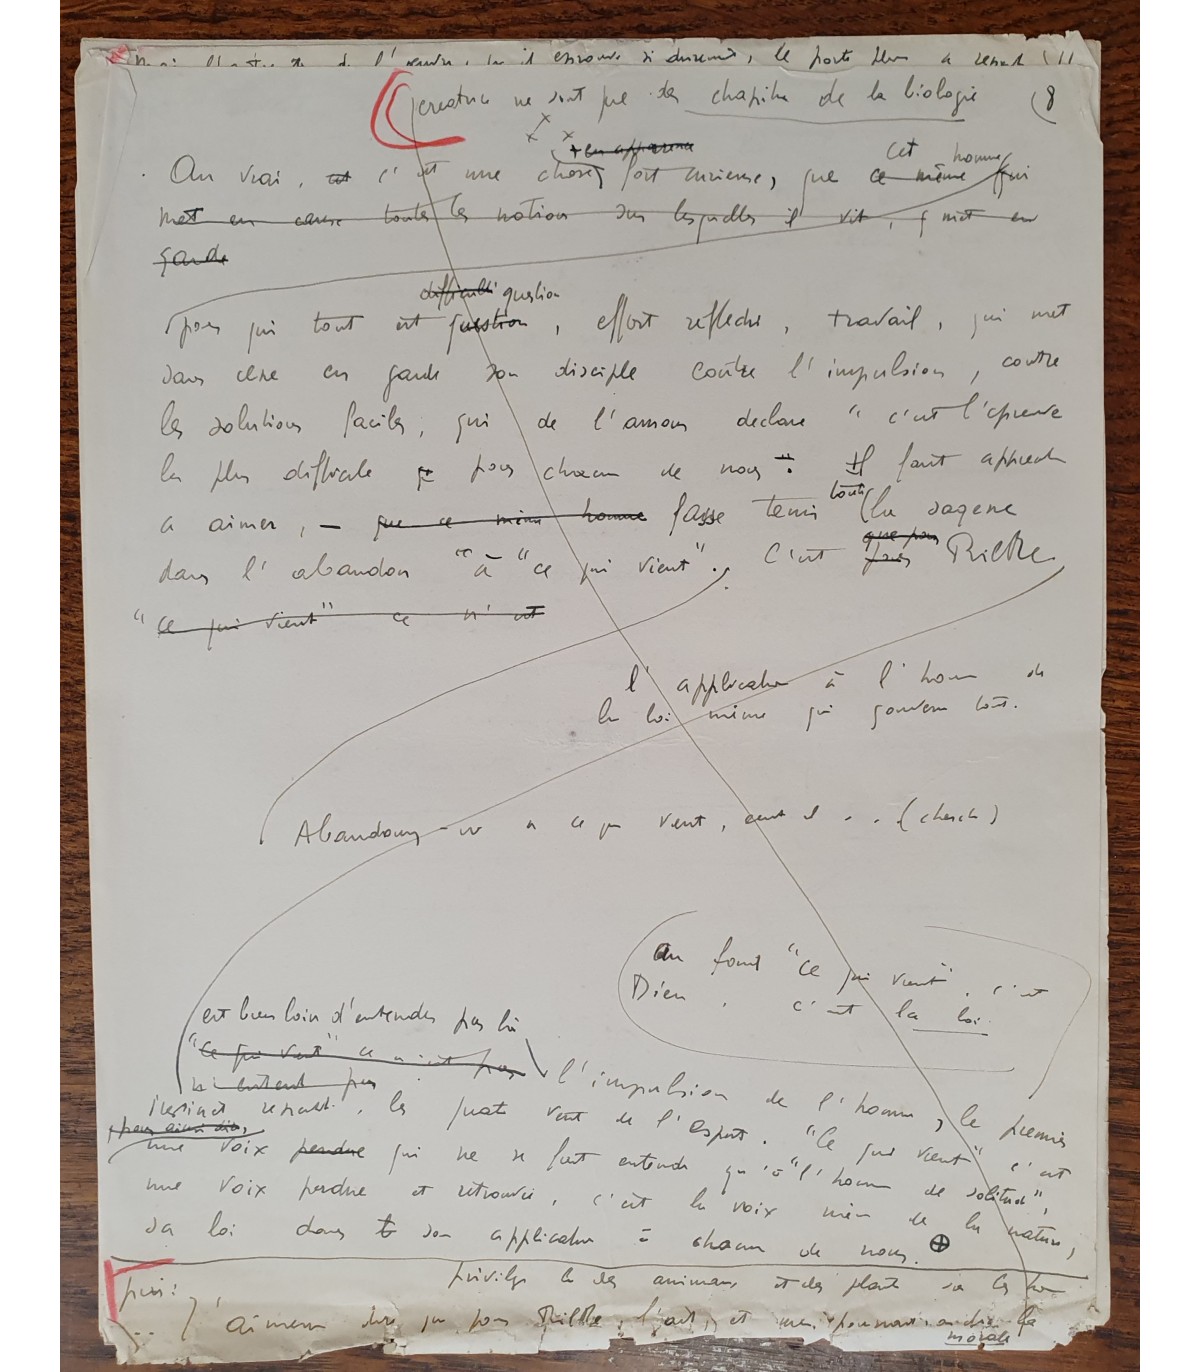 de l'œuvre, le poète
créatrice ne sont que des chapitres de la biologie (8
+ en apparence
cet homme
Au vrai, est c'est une chose, fort curieuse, que ce même qui
met en cause toutes les notions sur lesquelles il vit, met en
garde
difficulté question
pour qui tout est question, effort réfléchi, travail, qui met
sans cesse en garde son disciple contre l'impulsion, contre
les solutions faciles, qui de l'amour déclare "c'est l'épreuve
la plus difficile pour chacun de nous". Il faut apprendre
toute
a aimer, — que ce même homme fasse tenir la sagesse
que pour
dans l'abandon "à "ce qui vient". C'est pour Rilke
"ce qui vient" ce n'est
l'application à l'homme de
la loi même qui gouverne tout.
Abandonnez-vous à ce qui vient, écrit il . . (cherche)
au fond "ce qui vient", c'est
Dieu, c'est la loi.
est bien loin d'entendre par là
"ce qui vient" ce n'est pas
n'entend pas l'impulsion de l'homme, le premier
instinct, les quatre vents de l'esprit. "Ce qui vient" c'est
pour ainsi dire,
une voix perdue qui ne se fait entendre qu'à "l'homme de solitude",
une voix perdue et retrouvée, c'est la voix même de la nature,
sa loi dans son application à chacun de nous. ⊕
puis: privilège des animaux et des plantes sur les
aimerai dire que pour Rilke, l'art, et la
morale